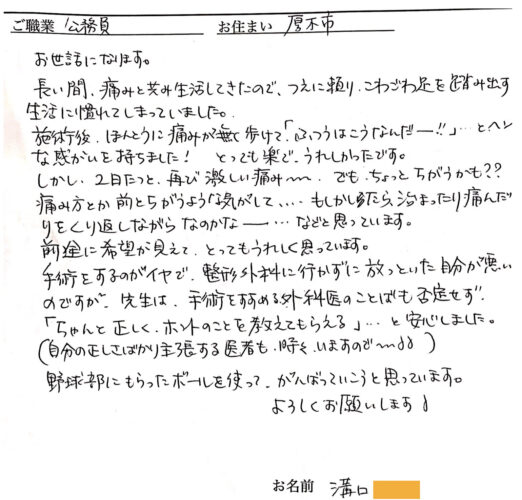 ご職業 公務員 お住まい 厚木市
お世話になります。
長い間、痛みと共に生活してきたので、つえに頼り、こわごわ足を踏み出す
生活に慣れてしまっていました。
施術後、ほんとうに痛みが無く歩けて「ふつうはこうなんだー!!」…とヘン
な感がいを持ちました! とっても楽で、うれしかったです。
しかし、2日たつと、再び激しい痛み〜 でも、ちょっとちがうかも??
痛み方とか前とちがうような気がして、… もしかしたら、治まったり痛んだ
りをくり返しながらなのかなー… などと思っています。
前途に希望が見えて、とってもうれしく思っています。
手術をするのがイヤで、整形外科に行かずに放っといた自分が悪い
のですが、先生は、手術をすすめる外科医のことばも否定せず、
「ちゃんと正しく、ホントのことを教えてもらえる」…と安心しました。
(自分の正しさばかり主張する医者も、時々、いますので〜)
野球部にもらったボールを使って、がんばっていこうと思っています。
よろしくお願いします
お名前 溝口